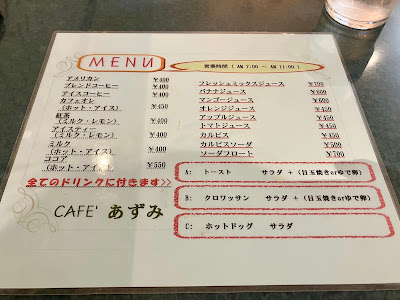 MENU
営業時間 ( AM 7:00 ～ AM 11:00 )
アメリカン ¥400
ブレンドコーヒー ¥400
アイスコーヒー ¥400
カフェオレ
(ホット・アイス) ¥450
紅茶
(ミルク・レモン) ¥400
アイスティー
(ミルク・レモン) ¥400
ミルク
(ホット・アイス) ¥400
ココア
(ホット・アイス) ¥550
フレッシュミックスジュース ¥700
バナナジュース ¥600
マンゴージュース ¥600
オレンジジュース ¥450
アップルジュース ¥450
トマトジュース ¥450
カルピス ¥450
カルピスソーダ ¥500
ソーダフロート ¥700
全てのドリンクに付きます>>
CAFE' あずみ
A: トースト サラダ + (目玉焼きorゆで卵)
B: クロワッサン サラダ + (目玉焼きorゆで卵)
C: ホットドッグ サラダ